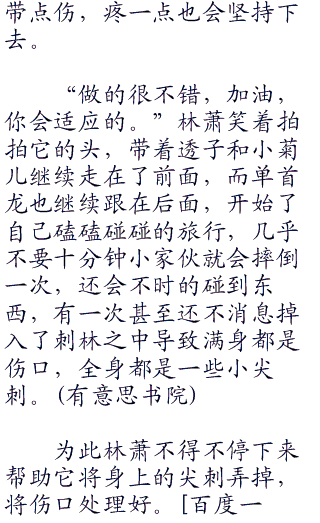 带点伤，疼一点也会坚持下
去。
“做的很不错，加油，
你会适应的。”林萧笑着拍
拍它的头，带着透子和小菊
儿继续走在了前面，而单首
龙也继续跟在后面，开始了
自己磕磕碰碰的旅行，几乎
不要十分钟小家伙就会摔倒
一次，还会不时的碰到东
西，有一次甚至还不消息掉
入了刺林之中导致满身都是
伤口，全身都是一些小尖
刺。(有意思书院)
为此林萧不得不停下来
帮助它将身上的尖刺弄掉，
将伤口处理好。[百度一